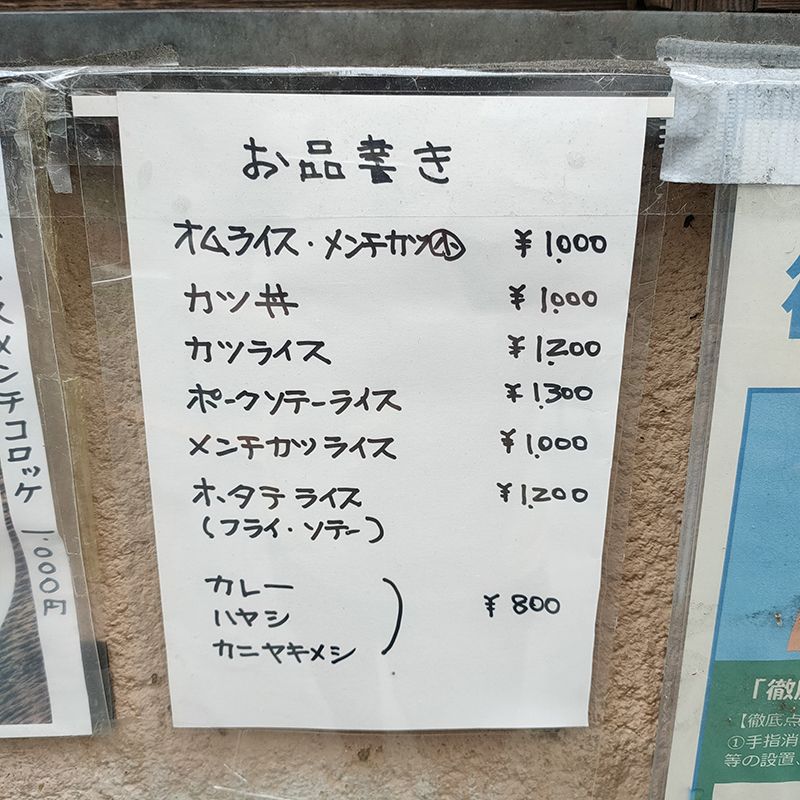 お品書き
オムライス・メンチカツ㊙小 ¥1,000
カツ丼 ¥1,000
カツライス ¥1,200
ポークソテーライス ¥1,300
メンチカツライス ¥1,000
ホタテライス ¥1,200
(フライ・ソテー)
カレー
ハヤシ ¥800
カニヤキメシ
メンチコロッケ 1,000円
「徹底
【徹底点
①手指消
等の設置、